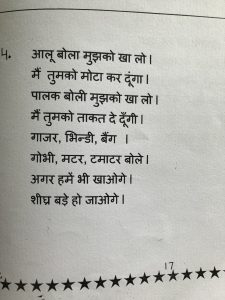 4. आलू बोला मुझको खा लो ।
मैं तुमको मोटा कर दूंगा ।
पालक बोली मुझको खा लो ।
मैं तुमको ताकत दे दूँगी ।
गाजर, भिन्डी, बैंग ।
गोभी, मटर, टमाटर बोले ।
अगर हमें भी खाओगे ।
शीघ्र बड़े हो जाओगे ।
17